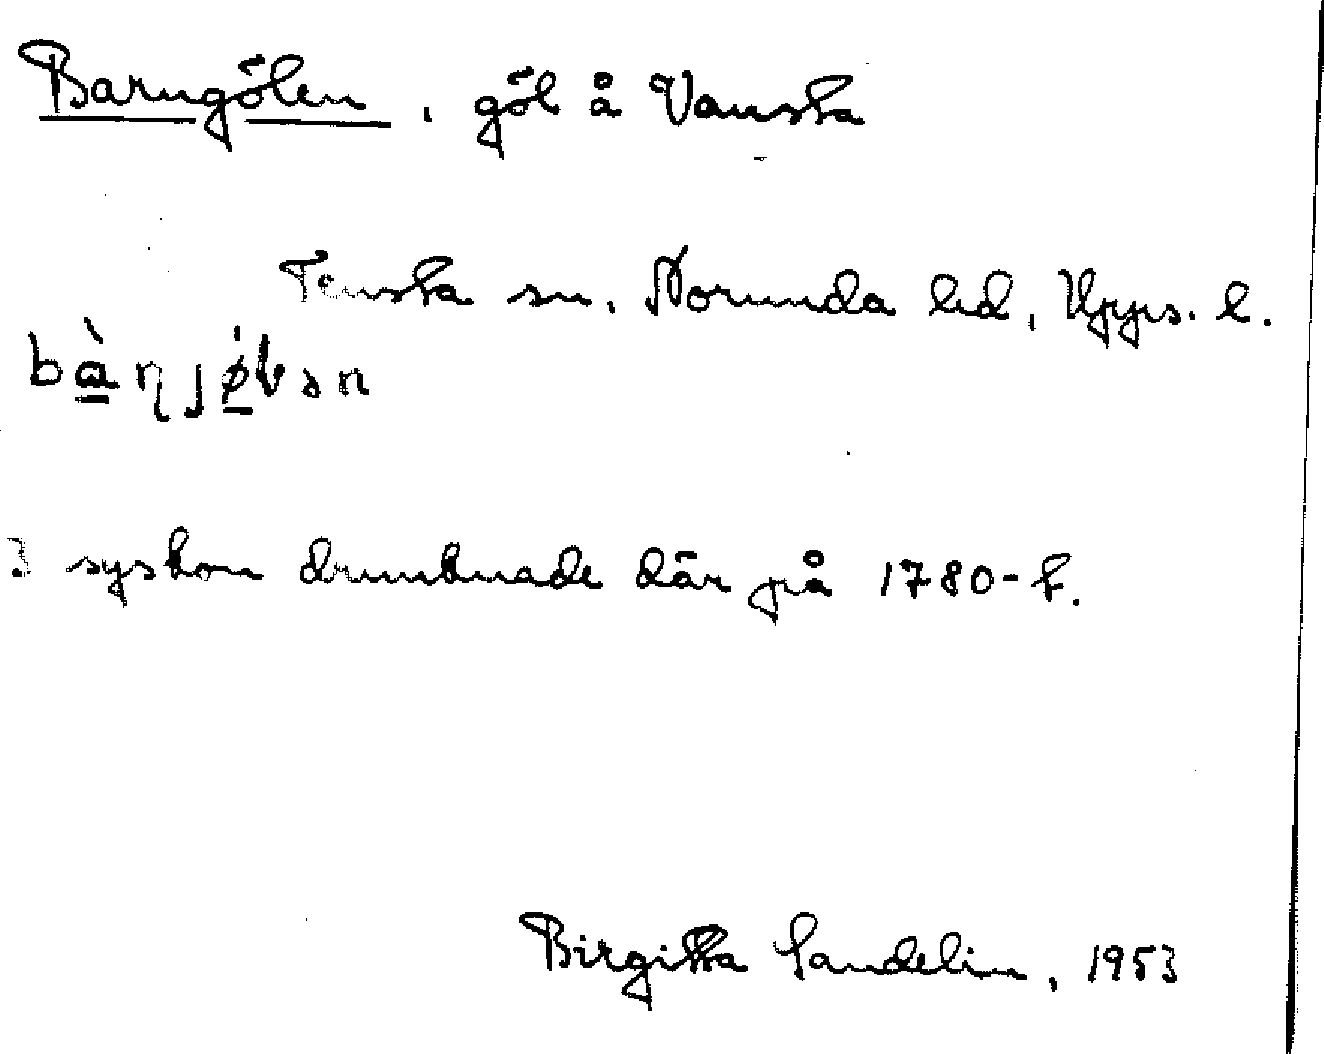 Barngölen, göl å Vansta
Tensta sn. Norunda hd, Upps. l.
bà̱ɳjǿ̱ɭən
3 syskon drunknade där på 1780-t.
Birgitta Sandelin, 1953